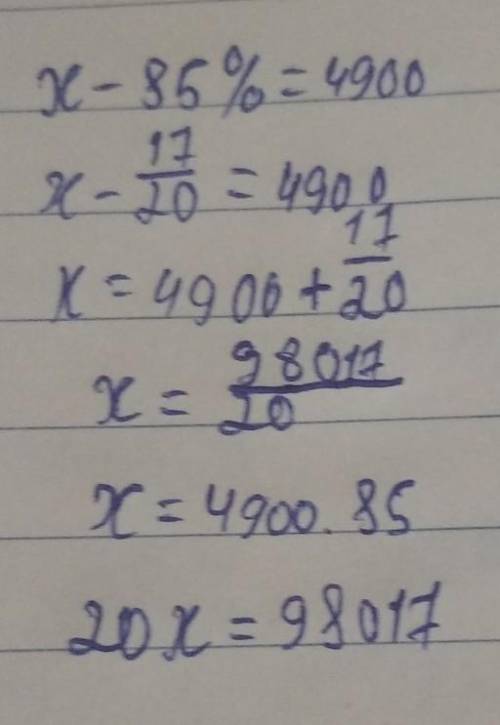 x - 85% = 4900
x - 17/20 = 4900
x = 4900 + 17/20
x = 98017/20
x = 4900.85
20x = 98017